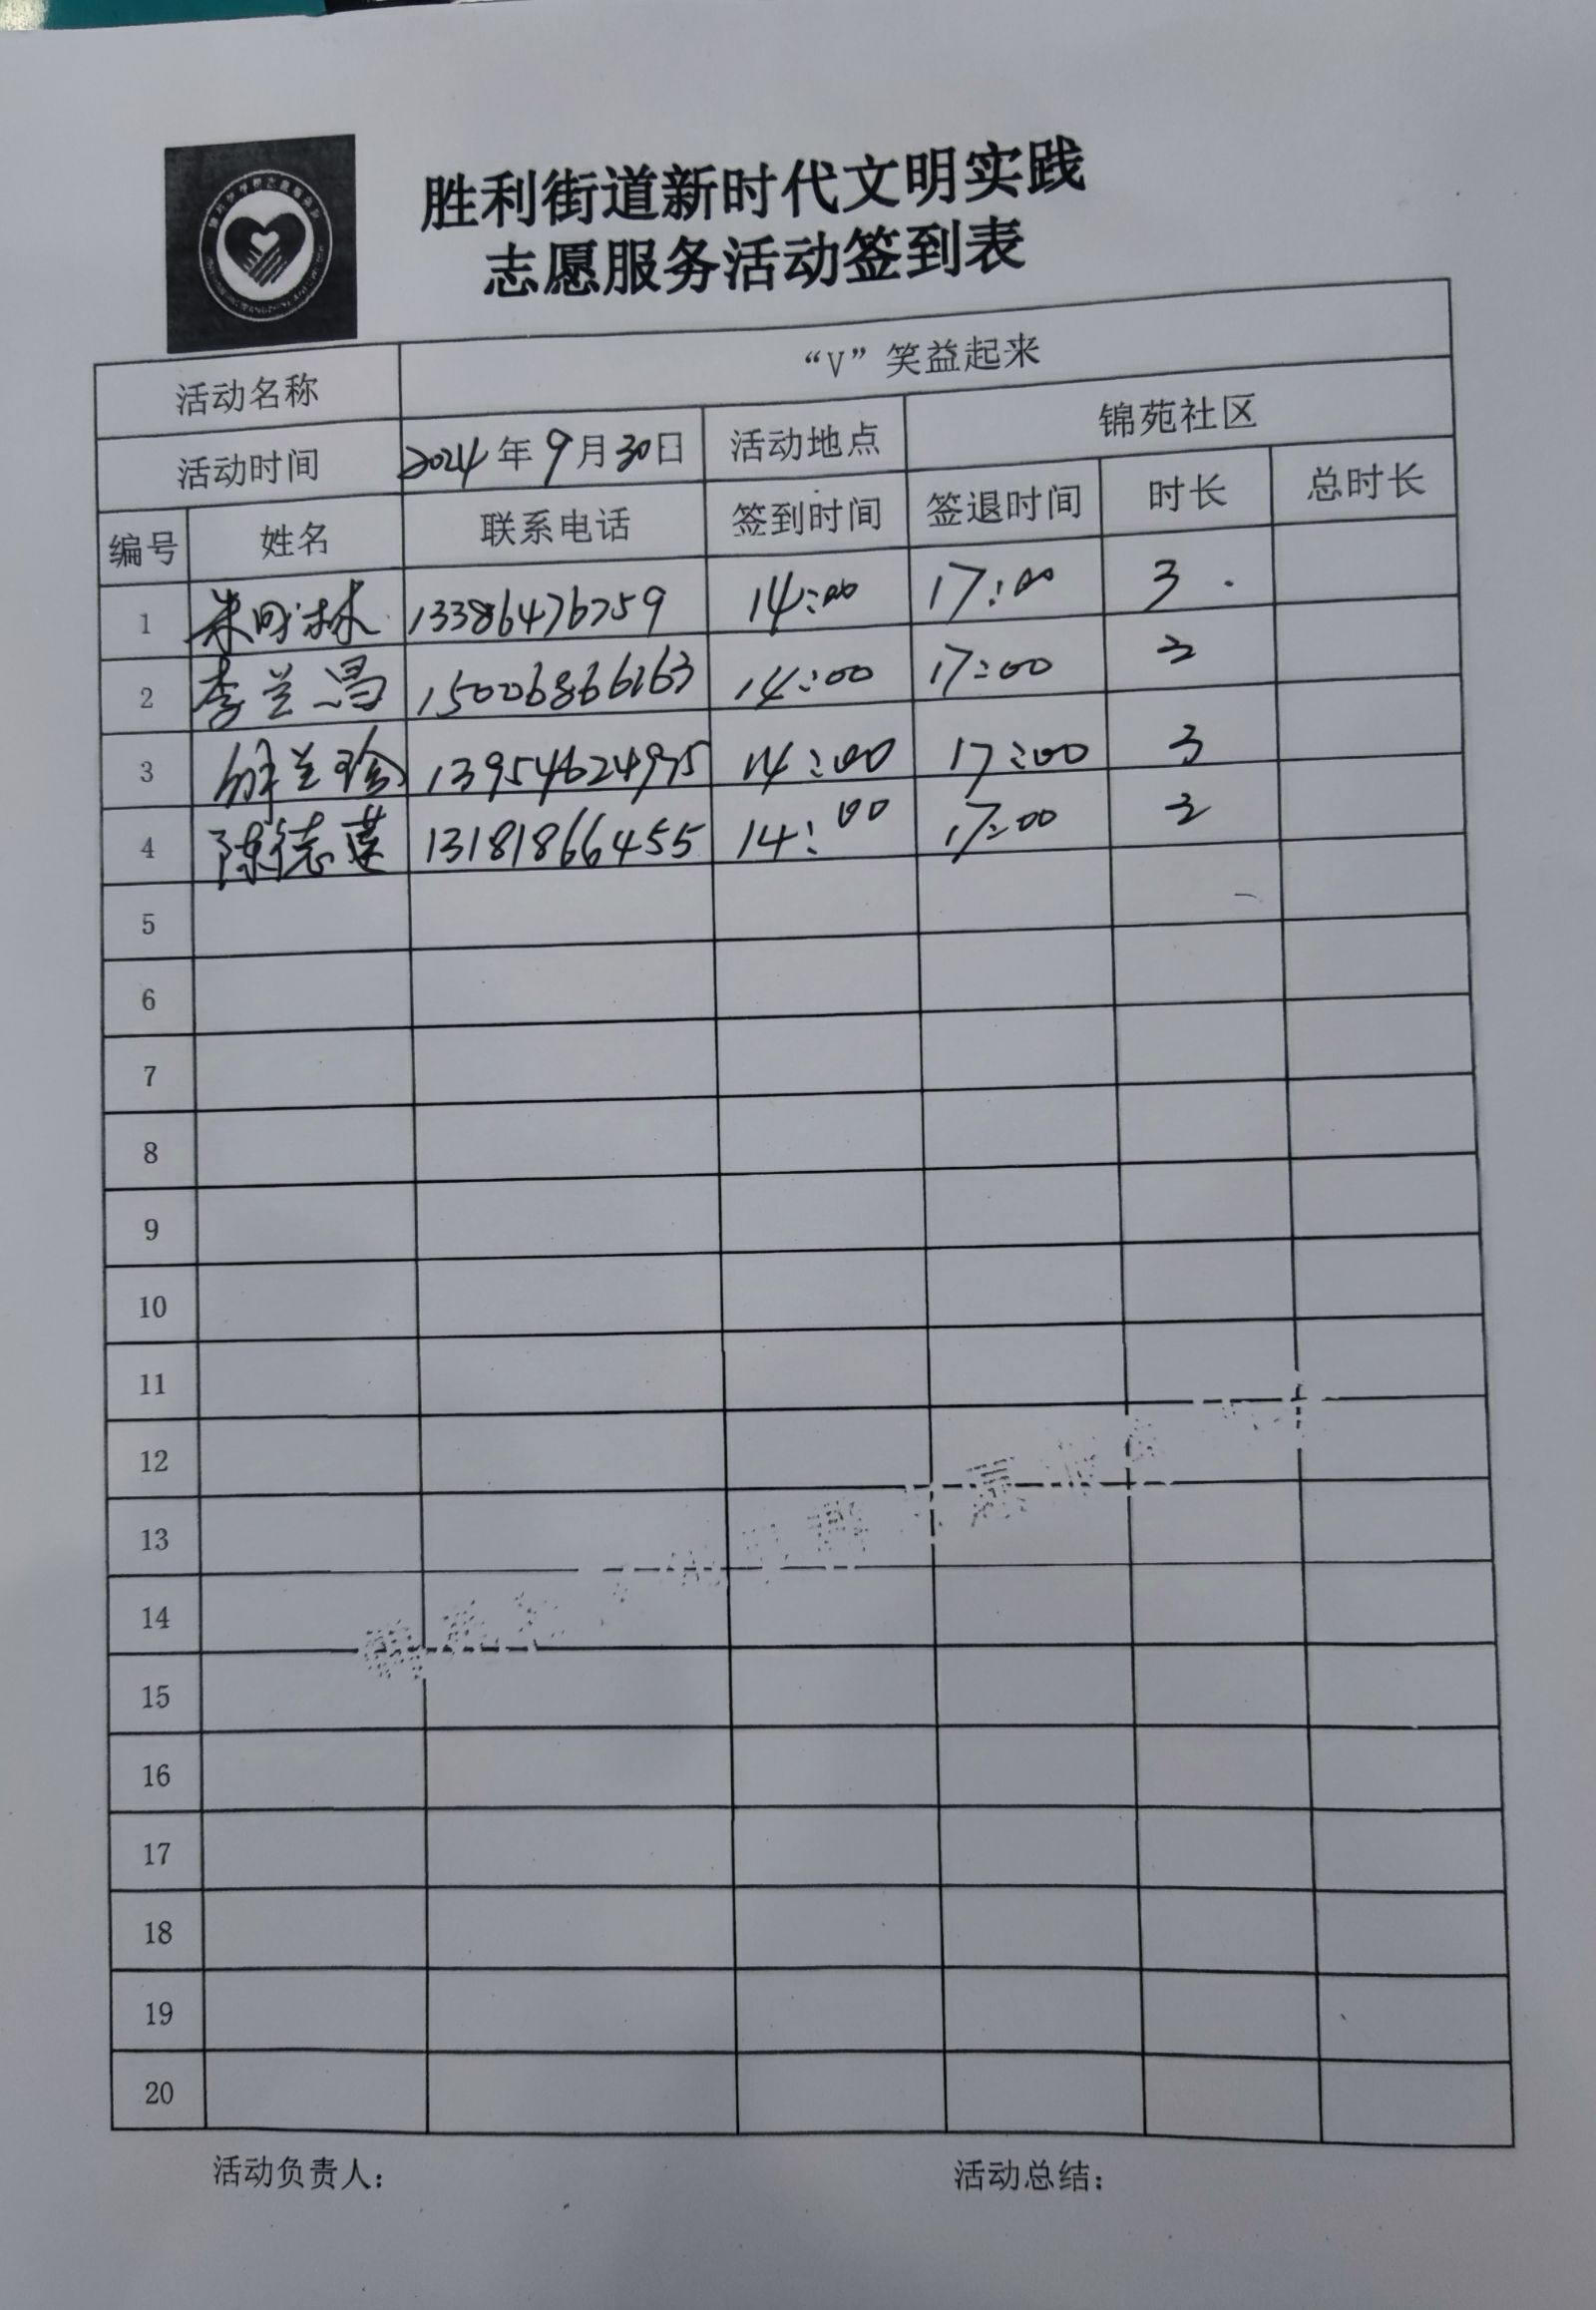 胜利街道新时代文明实践
志愿服务活动签到表
活动名称 “V”笑益起来
活动时间 2024年9月30日 活动地点 锦苑社区
编号 姓名 联系电话 签到时间 签退时间 时长 总时长
1 13386476759 14:00 17:00 3
2 李兰 15006866263 14:00 17:00 3
3 薛兰珍 13954624975 14:00 17:00 3
4 陈德莲 13181866455 14:00 17:00 3
5
6
7
8
9
10
11
12
13
14
15
16
17
18
19
20
活动负责人： 活动总结：